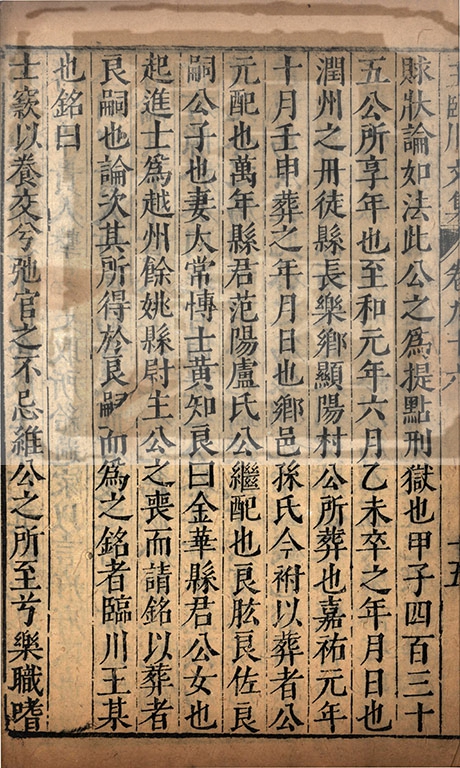 王臨川文集 卷九十六 十五
賕狀論如法此公之為提點刑獄也甲子四百三十
五公所享年也至和元年六月乙未卒之年月日也
潤州之丹徒縣長樂鄉顯陽村公所葬也嘉祐元年
十月壬申葬之年月日也鄉邑孫氏今祔以葬者公
元配也萬年縣君范陽盧氏公繼配也良肱良佐良
嗣公子也妻太常博士黃知良曰金華縣君公女也
起進士為越州餘姚縣尉主公之喪而請銘以葬者
良嗣也論次其所得於良嗣而為之銘者臨川王某
也銘曰
士窾以養交兮弛官之不忌維公之所至兮樂職嗜